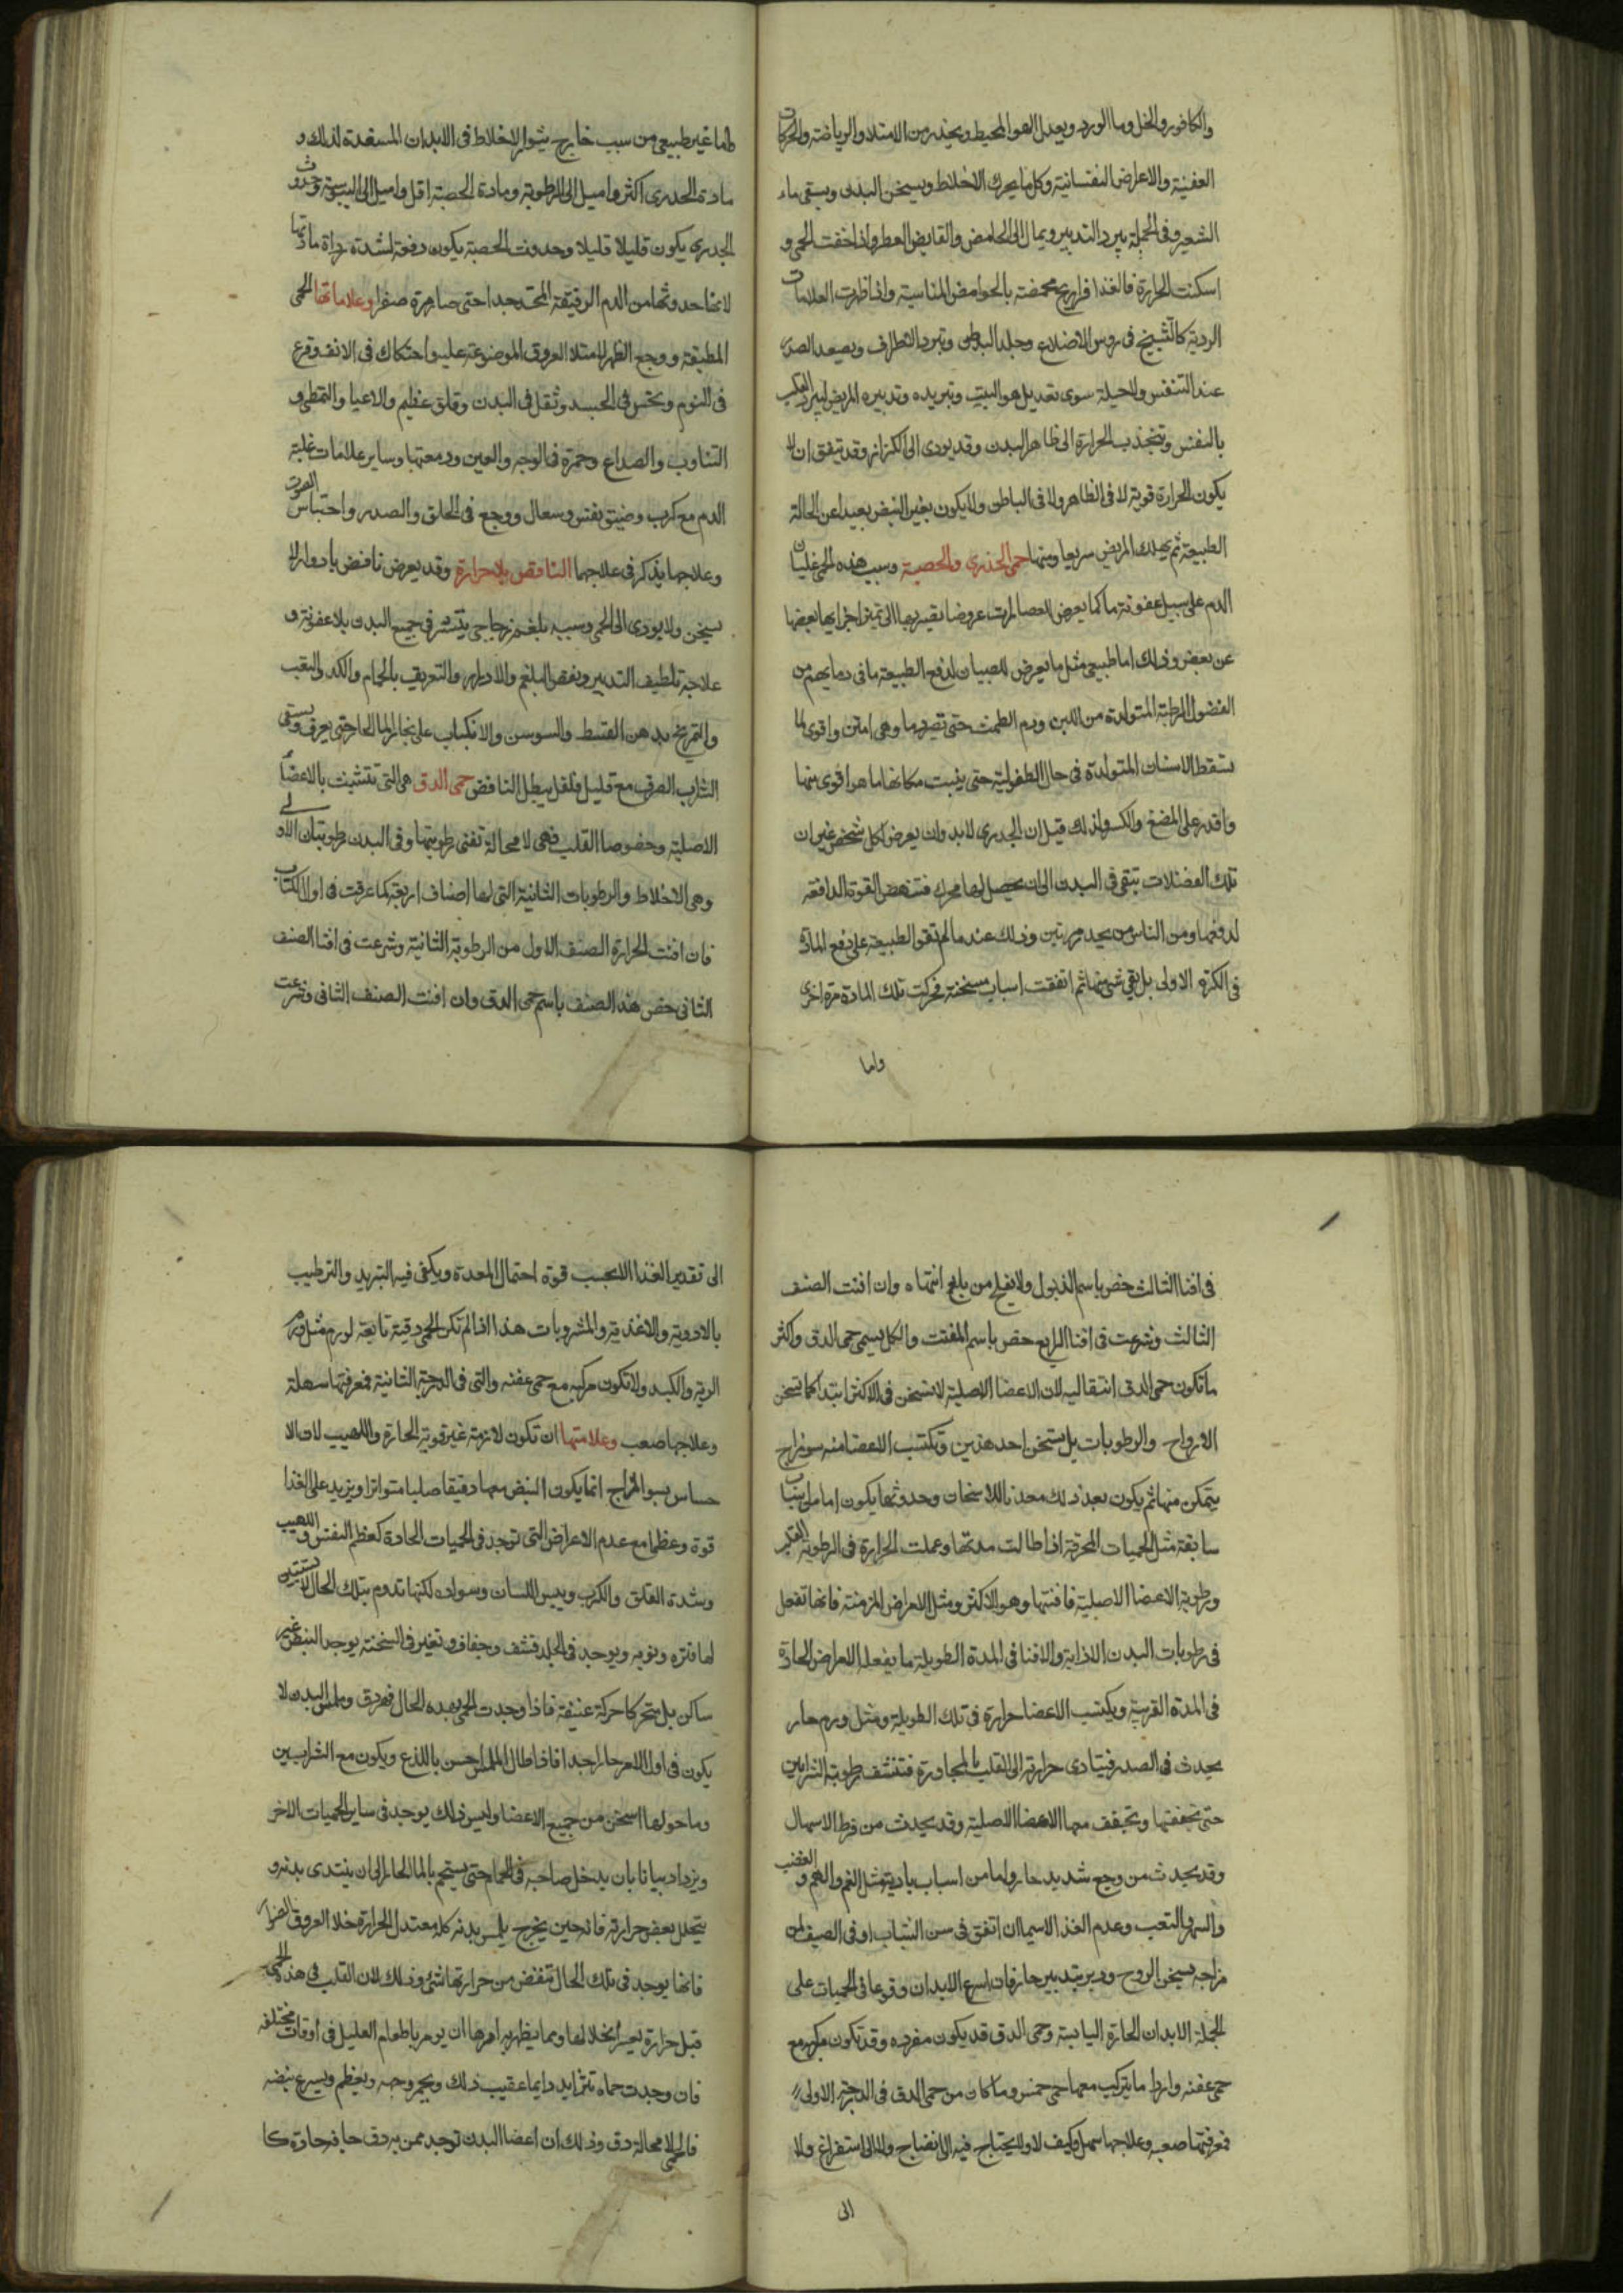 والكافور والخل وما الورد ويعدل الهوا المحيط ويحذر من الامتلا والرياضة والحركات
العفنية والاعراض النفسانية وكل ما يحرك الاخلاط ويسخن البدن ويسقى ماء
الشعير وفى الجملة يبرد التدبير ويمال الى الحامض والقابض العطر واذا خفت الحمى و
اسكنت الحرارة فالغذا فراريج محمضة بالحوامض المناسبة واذا ظهرت العلامات
الردية كالتشنج فى روس الاضلاع وجلد البطن وتبرد الاطراف ويصعد الصدر
عند التنفس ولا حيلة سوى تعديل هوا البيت وتبريده وتدبيره المريض ليبرد القلب
بالنفس وتنجذب الحرارة الى ظاهر البدن وقد يودى الى الكزاز وقد يتفق ان لا
يكون الحرارة قوية لا فى الظاهر ولا فى الباطن ولا يكون بغير النبض بعيدا عن الحالة
الطبيعة ثم يهلك المريض سريعا ومنها حمى الجدرى والحصبة وسبب هذه الحمى غليان
الدم على سبيل عفونة ما كما يعرض للعصارات عروضا يصير بها الى تميز اجزايها بعضها
عن بعض وذلك اما طبيعى مثل ما يعرض للصبيان لدفع الطبيعة ما فى دمايهم من
الفضول الرطبة المتولدة من اللبن ودم الطمث حتى تصير دما وهى امتن واقوى لما
تسقط الاسنان المتولدة فى حال الطفولية حتى ينبت مكانها ما هو اقوى منها
واقدر على المضغ والكسر ولذلك قيل ان الجدرى لابد وان يعرض لكل شخص غير ان
تلك الفضلات تبقى فى البدن الى ان يحصل لها محرك فتنهض القوة الدافعة
لدفعها ومن الناس من يجدر مرتين وذلك عند ما لم تقو الطبيعة على دفع المادة
فى الكرة الاولى بل بقى شى منها ثم اتفقت اسباب مسخنة فحركت تلك المادة مرة اخرى
واما
طما غير طبيعى من سبب خارج يثور الاخلاط فى الابدان المستعدة لذلك و
مادة الجدرى اكثر واميل الى الرطوبة ومادة الحصبة اقل واميل الى اليبوسة وحدوث
الجدرى يكون قليلا قليلا وحدوث الحصبة يكون دفعة لشدة رداة مادتها
لانها حدوثها من الدم الرقيقة المحتد جدا حتى صار مرة صفرا وعلاماتها الحمى
المطبقة ووجع الظهر لامتلا العروق الموضوعة عليه واحتكاك فى الانف وفزع
فى النوم ونخس فى الجسد وثقل فى البدن وقلق عظيم والاعيا والتمطى و
التثاوب والصداع وحمرة فى الوجه والعين ودمعتها وساير علامات غلبة
الدم مع كرب وضيق نفس وسعال ووجع فى الحلق والصدر واحتباس الصوت
وعلاجها يذكر فى علاجها النافض بلا حرارة وقد يعرض نافض بادوار لا
يسخن ولا يودى الى الحمى وسببه بلغم زجاجى ينتشر فى جميع البدن بلا عفونة و
علاجه تلطيف التدبير ونفض البلغم والادرار والتعريق بالحمام والكد والتعب
والتمريخ بدهن القسط والسوسن والانكباب على بخار الما الحار حتى يعرق ويسقى
الشراب الصرف مع قليل فلفل يبطل النافض حمى الدق هى التى تتشبث بالاعضآ
الاصلية وخصوصا القلب فهى لا محالة تفنى رطوبتها وفى البدن رطوبتان الاولى
وهى الاخلاط والرطوبات الثانية التى لها اصناف اربعة كما عرفت فى اول الكتاب
فان افنت الحرارة الصنف الاول من الرطوبة الثانية وشرعت فى افنا الصنف
الثانى خص هذا الصنف باسم حمى الدق وان افنت الصنف الثانى وشرعت
فى افنا الثالث خص باسم الذبول ولا يفلح من بلغ انتهاه وان افنت الصنف
الثالث وشرعت فى افنا الرابع خص باسم المفتت والكل يسمى حمى الدق واكثر
ما تكون حمى الدق انتقالية لان الاعضا الاصلية لا تسخن فى الاكثر ابتدا كما تسخن
الارواح والرطوبات بل يسخن احد هذين وتكتسب الاعضا منه سو مزاج
يتمكن منها ثم يكون بعد ذلك معدنا للاسخان وحدوثها يكون اما من اسباب
سابقة مثل الحميات المحرقة اذا طالت مدتها وعملت الحرارة فى الرطوبة القلب
ورطوبة الاعضا الاصلية فافنتها وهو الاكثر ومثل الامراض المزمنة فانها تفعل
فى رطوبات البدن الاذابة والافنا فى المدة الطويلة ما يفعله الامراض الحادة
فى المدة القريبة ويكتسب الاعضا حرارة فى تلك الطويلة ومثل ورم حار
يحدث فى الصدر فيتادى حرارته الى القلب بالمجاورة فتنشف رطوبة الشرايين
حتى تجففها وتجفف معها الاعضا الاصلية وقد يحدث من فرط الاسهال
وقد يحدث من وجع شديد حار واما من اسباب بادية مثل الغم والهم والغضب
والسهر والتعب وعدم الغذا لاسيما ان اتفق فى سن الشباب او فى الصيف لمن
مزاجه يسخن الروح ودبر بتدبير حار فان اسرع الابدان وقوعا فى الحميات على
الجملة الابدان الحارة اليابسة وحمى الدق قد يكون مفردة وقد تكون مركبة مع
حمى عفنة واردا ما يتركب معها حمى خمس وما كان من حمى الدق فى الدرجة الاولى
فمعرفتها صعبة وعلاجها سهل وكيف لا ولا يحتاج فيه الى الانضاج ولا الى استفراغ ولا
الى
الى تقدير الغذا الا بحسب قوة احتمال المعدة ويكفى فيه التبريد والترطيب
بالادوية والاغذية والمشروبات هذا اذا لم تكن الحمى دقية تابعة لورم مثل ورم
الرية والكبد ولا تكون مركبة مع حمى عفنة والتى فى الدرجة الثانية فمعرفتها سهلة
وعلاجها صعب وعلامتها ان تكون لازمة غير قوية الحرارة واللهيب لان الا
حساس بسو المزاج انما يكون النبض معها دقيقا صلبا متواترا ويزيد على الغذا
قوة وعظما مع عدم الاعراض التى توجد فى الحميات الحادة كعظم النفس واللهيب
وشدة القلق والكرب ويبس اللسان وسواده لكنها تدوم بتلك الحال لا تستبين
لها فترة ونوبة ويوجد فى الجلد قشف وجفاف وتغير فى السخنة يوجد النبض غير
ساكن بل متحركا حركة عنيفة فاذا وجدت الحمى بهذه الحال فهى دق وملمس البدن لا
يكون فى اول الامر حارا جدا فاذا طال الملمس احس باللذع ويكون مع الشرايين
وما حولها اسخن من جميع الاعضا وليس ذلك يوجد فى ساير الحميات الاخر
ويزداد بيانا بان يدخل صاحبه فى الحمام حتى يستحم بالما الحار الى ان يبتدى بدنه و
يتحلل بعض حرارته فانه حين يخرج يلمس بدنه كله معتدل الحرارة خلا العروق الضوارب
فانها يوجد فى تلك الحال تنقص من حرارتها شى وذلك لان القلب فى هذه الحمى
قبل حرارة يعسر انحلالها ومما يظهر به امرها ان يومر باطعام العليل فى اوقات مختلفة
فان وجدت حماه تتزايد دايما عقيب ذلك ويحمر وجهه ويعظم ويسرع نبضه
فالحمى لا محالة دق وذلك ان اعضا البدن توجد ممن به دق حافة حادة كا